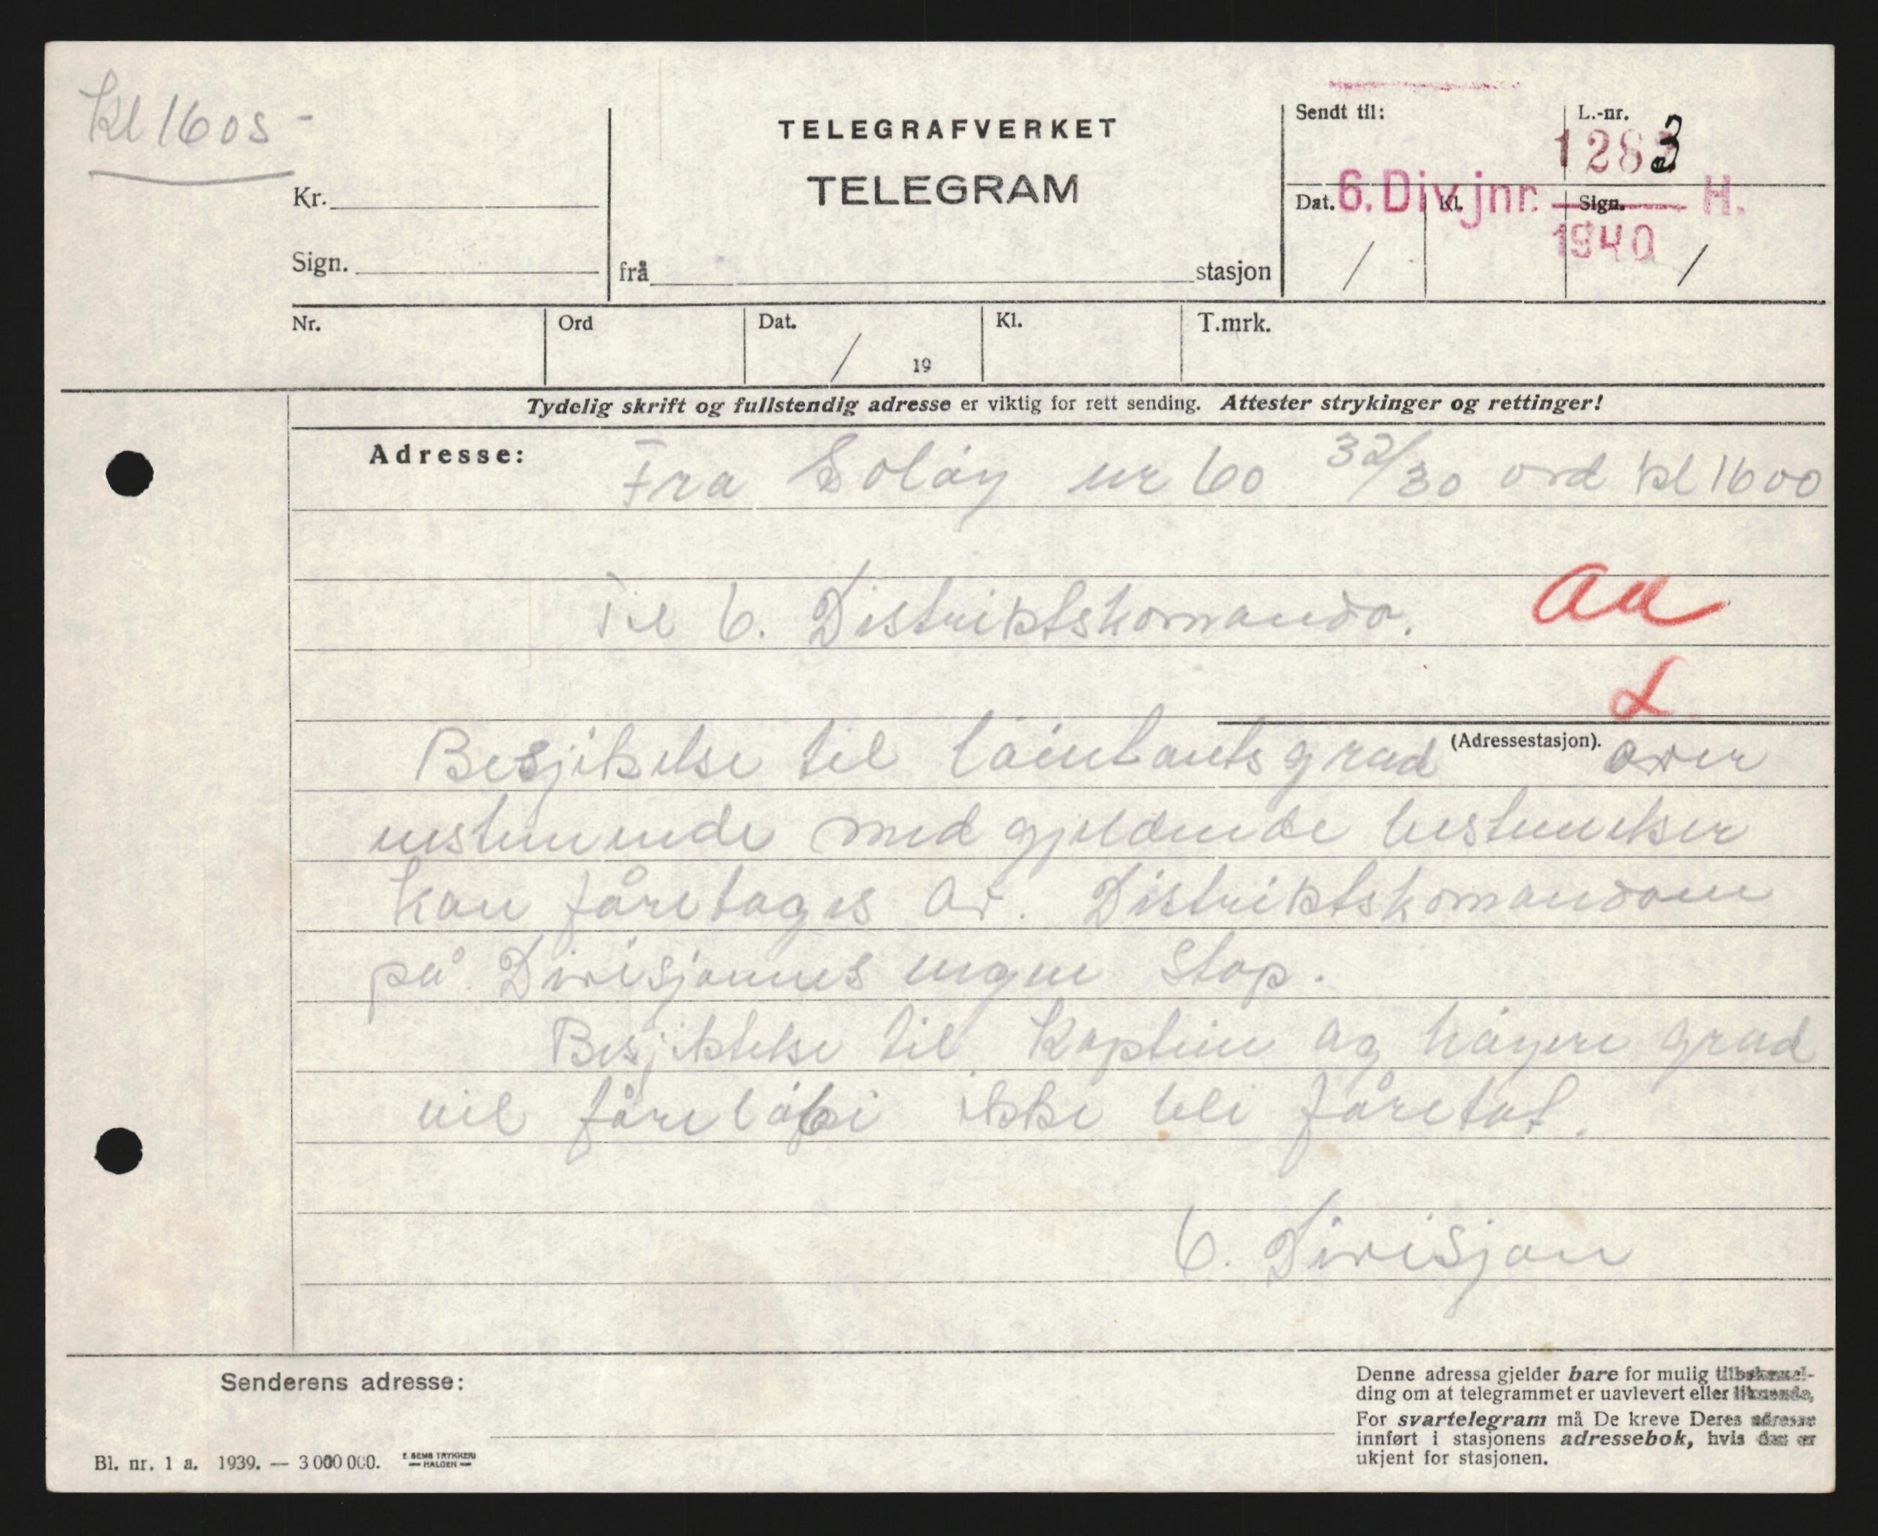 kl 1605 -
Kr.
Sign.
TELEGRAFVERKET
TELEGRAM
frå stasjon
Sendt til:
L.-nr.
1283
6. Div.jnr. H.
Dat. Kl. Sign.
1940
/ /
Nr. Ord Dat. / 19 Kl. T.mrk.
Tydelig skrift og fullstendig adresse er viktig for rett sending. Attester strykinger og rettinger!
Adresse:
Fra Soløy nr 60 32/30 ord kl 1600
Til 6. Distriktskomando.
(Adressestasjon).
Besjikelse til løintantsgrad over
enstemende med gjeldende bestemelser
kan føretages av. Distriktskomandoen
på Divisjonnes vegne Stop.
Besjiktelse til Kaptein og høyere grad
vil føreløbi ikke bli føretat.
6. Divisjon
Senderens adresse:
Denne adressa gjelder bare for mulig tilbakemel-
ding om at telegrammet er uavlevert eller liknende,
For svartelegram må De kreve Deres adresse
innført i stasjonens adressebok, hvis den er
ukjent for stasjonen.
Bl. nr. 1 a. 1939. — 3 000 000.
E. SEMS TRYKKERI
— HALDEN —